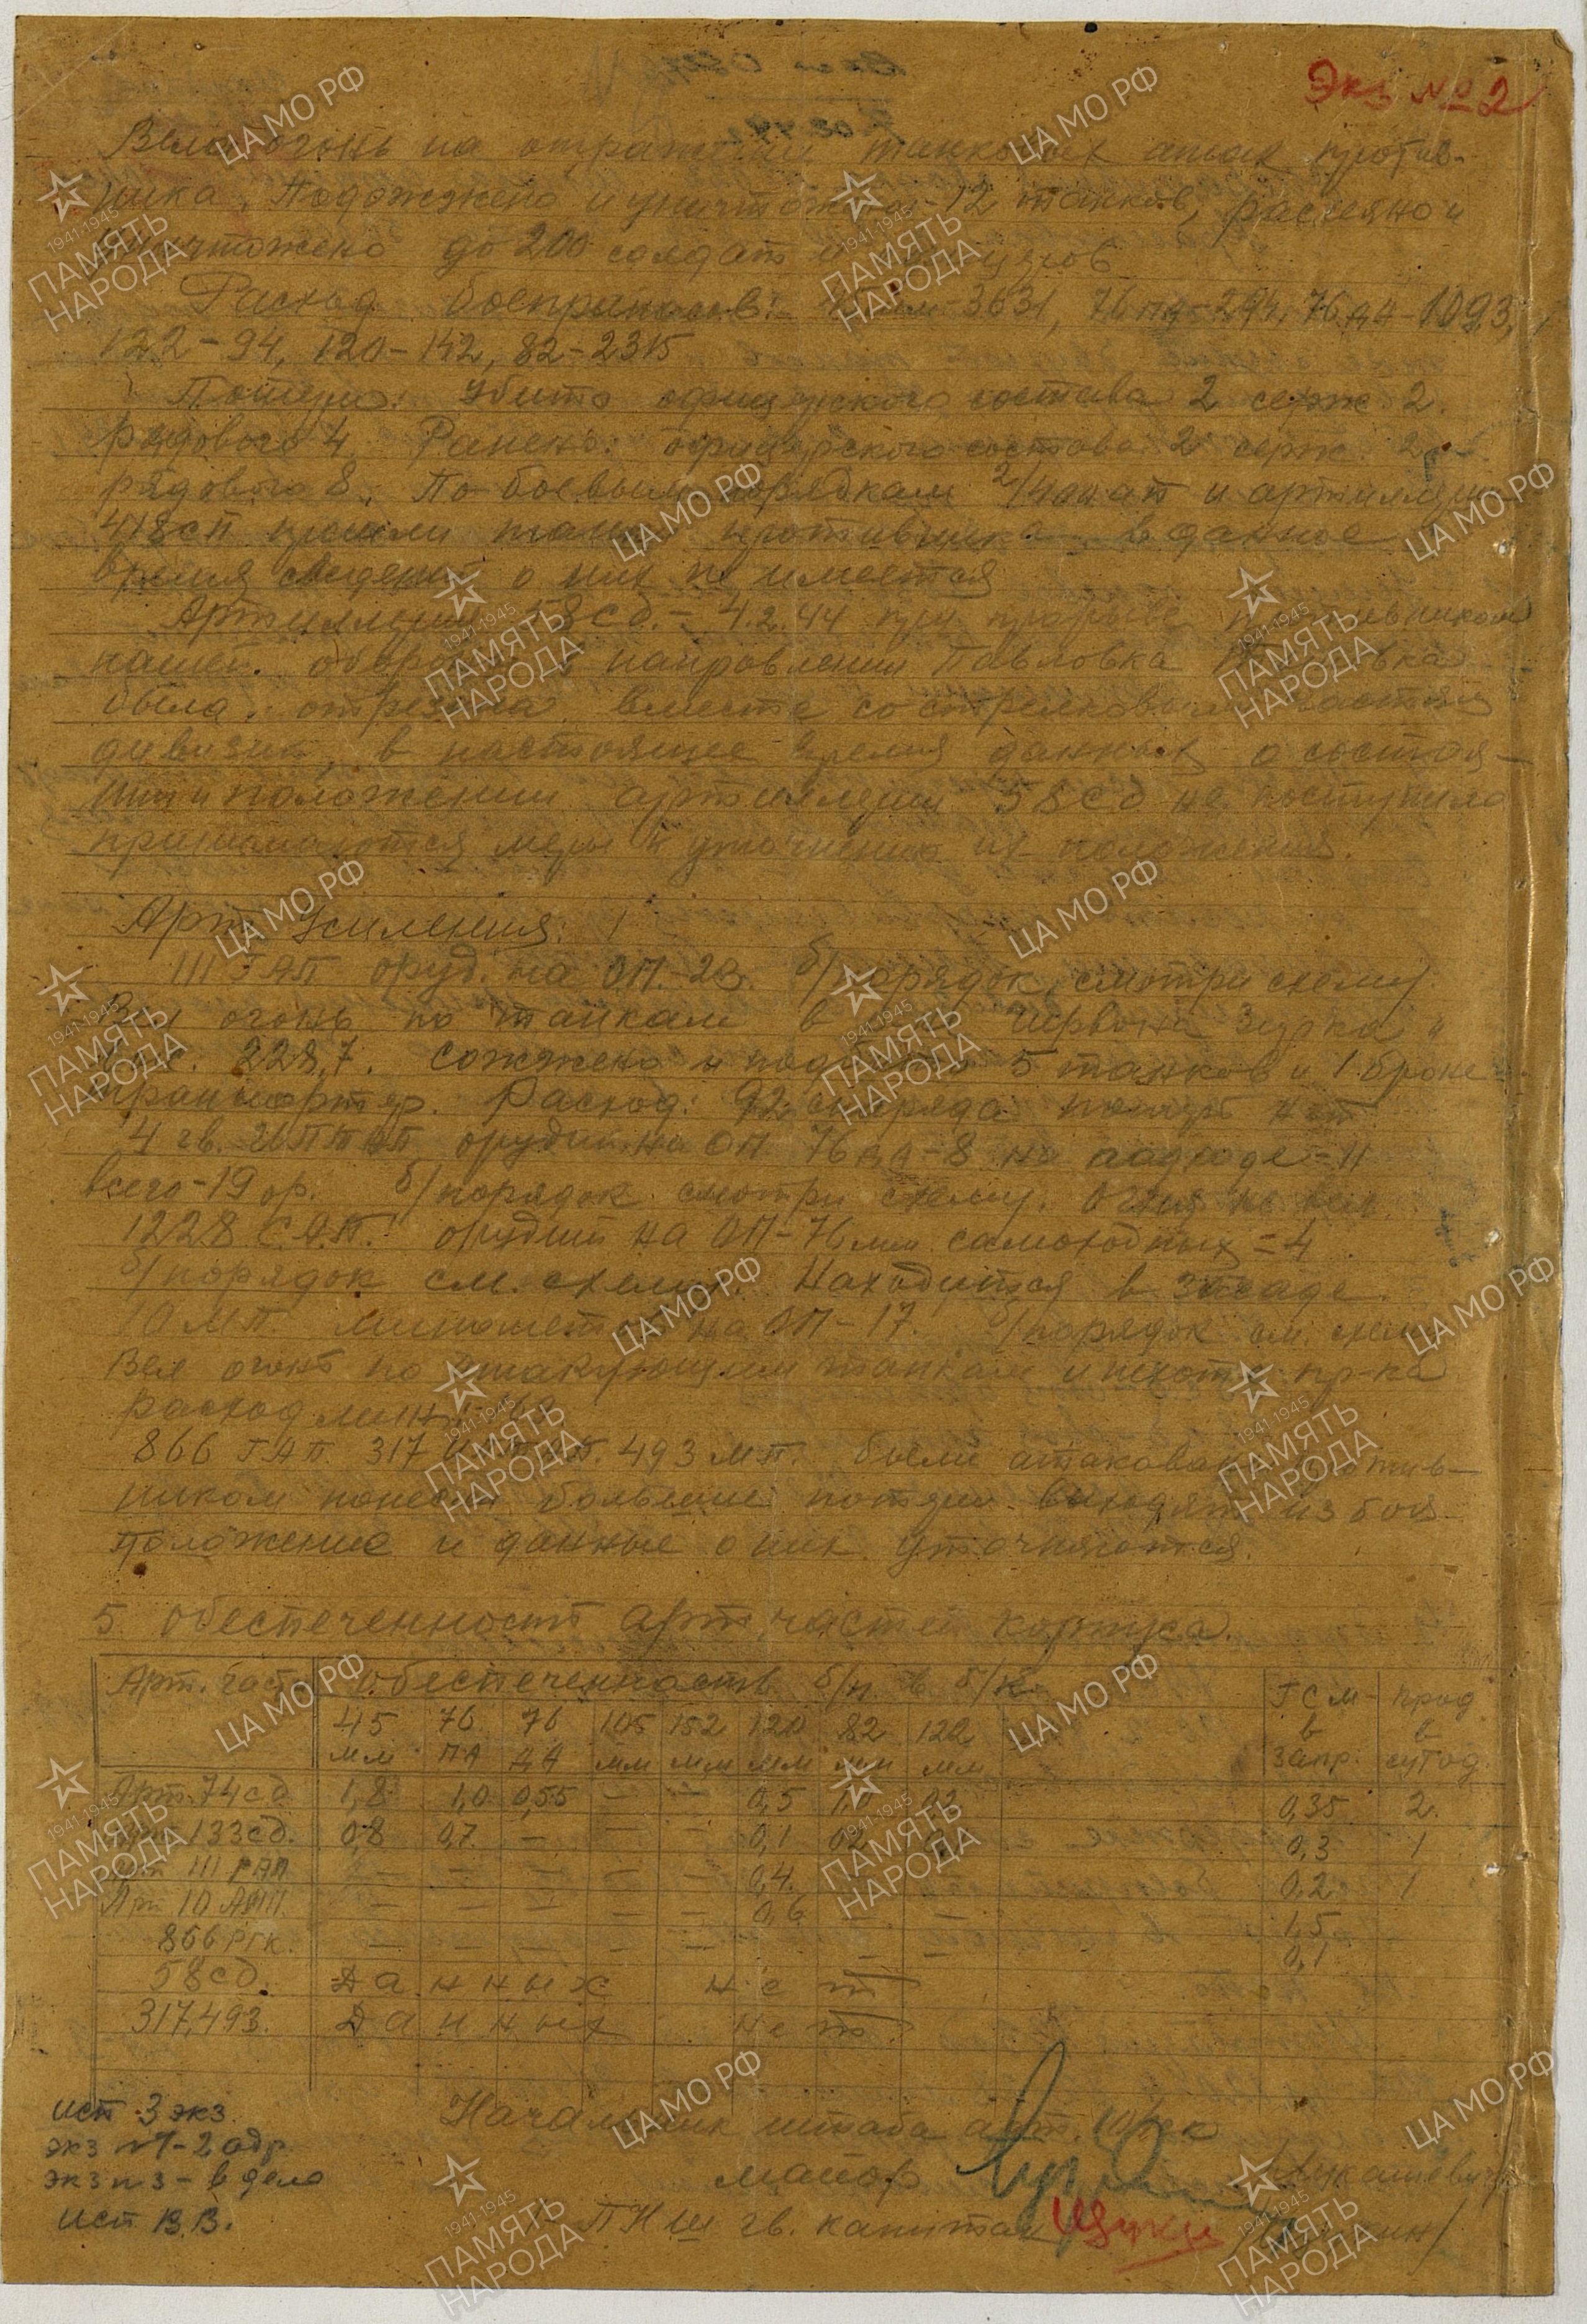 Экз № 2
Вели огонь на отражении танковых атак против-
ника. Подожжено и уничтожено - 12 танков, рассеяно и
уничтожено до 200 солдат и
Расход боеприпасов: 45 мм-3631, 76 па-294, 76 да-1093,
122-94, 120-142, 82-2315
Потери: Убито офицерского состава 2 серж. 2.
рядового 4. Ранено: офицерского состава 2 серж. 2
рядового 8. По боевым порядкам и артиллерии
418 сп прошли танки противника в данное
время сведений о них не имеется
Артиллерия 58 сд. - 4.2.44 при прорыве противником
нашей обороны в направлении Павловка
была отрезана вместе со стрелковыми частями
дивизии, в настоящее время данных о состоя-
нии и положении артиллерии 58 сд не поступило
принимаются меры к уточнению их положения.
Арт. Усиления:
111 ГАП оруд. на ОП-23. б/порядок, смотри схему.
Вел огонь по танкам в Червона Зирка и
выс. 228,7. сожжено и подбито 5 танков и 1 броне
транспортер. Расход: 92 снаряда потерь нет
4 гв. ИПТАП орудий на ОП 76 да-8 на подходе-11
всего-19 ор. б/порядок смотри схему. Огня не вел.
1228 САП. орудий на ОП-76 мм самоходных =4
б/порядок см. схему. Находится в засаде.
10 МП. минометов на ОП-17. б/порядок см. схему
Вел огонь по атакующим танкам и пехоте пр-ка
расход мин
866 ГАП. 317 ИПТАП. 493 МП. были атакованы против-
ником понесли большие потери выходят из боя
положение и данные о них уточняются.
5. Обеспеченность арт. частей корпуса.
Арт. част. Обеспеченность б/п. в б/к. ГСМ- прод
45 76 76 105 152 120 82 122 в в
мм ПА ДА мм мм мм мм мм запр. сутод.
Арт. 74 сд 1,8 1,0 0,55 — — 0,5 1,0 02 0,35 2.
Арт. 133 сд. 0,8 0,7. — — — 0,1 02 0,3 1
Арт 111 ГАП — — — — — 0,4. — 0,2 1
Арт 10 — — — — — 0,6 — — 1,5
866 РГК. — — — — — — — 0,1
58 сд. Данных нет
317,493. Данных нет
исп 3 экз.
экз №1-2 адр.
экз №3 - в дело
исп В.В.
Начальник штаба арт. 10/ск
майор /Лукашевич/
ПНШ гв. капитан